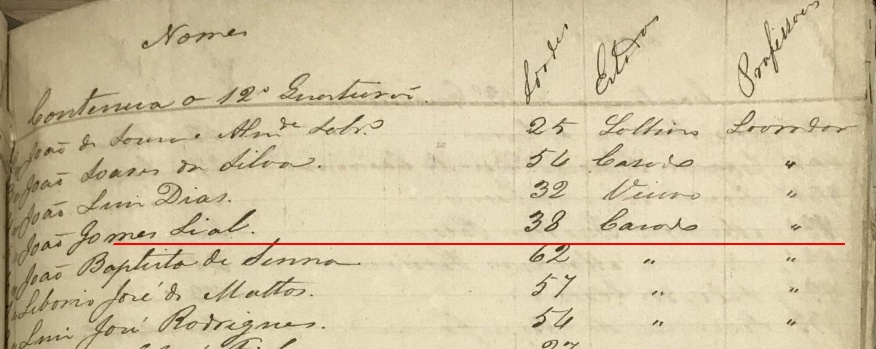 Nomes Idades Estados Profissões
Continua o 12º Quarteirão.
João de Souza e Almda Sobro 25 Solteiro Lavrador
João Soares da Silva. 54 Casado "
João Luis Dias. 32 Viuvo "
João Gomes Lial. 38 Casado "
João Baptista de Senna 62 " "
Liborio José de Mattos. 57 " "
Luis José Rodrigues. 54 " "